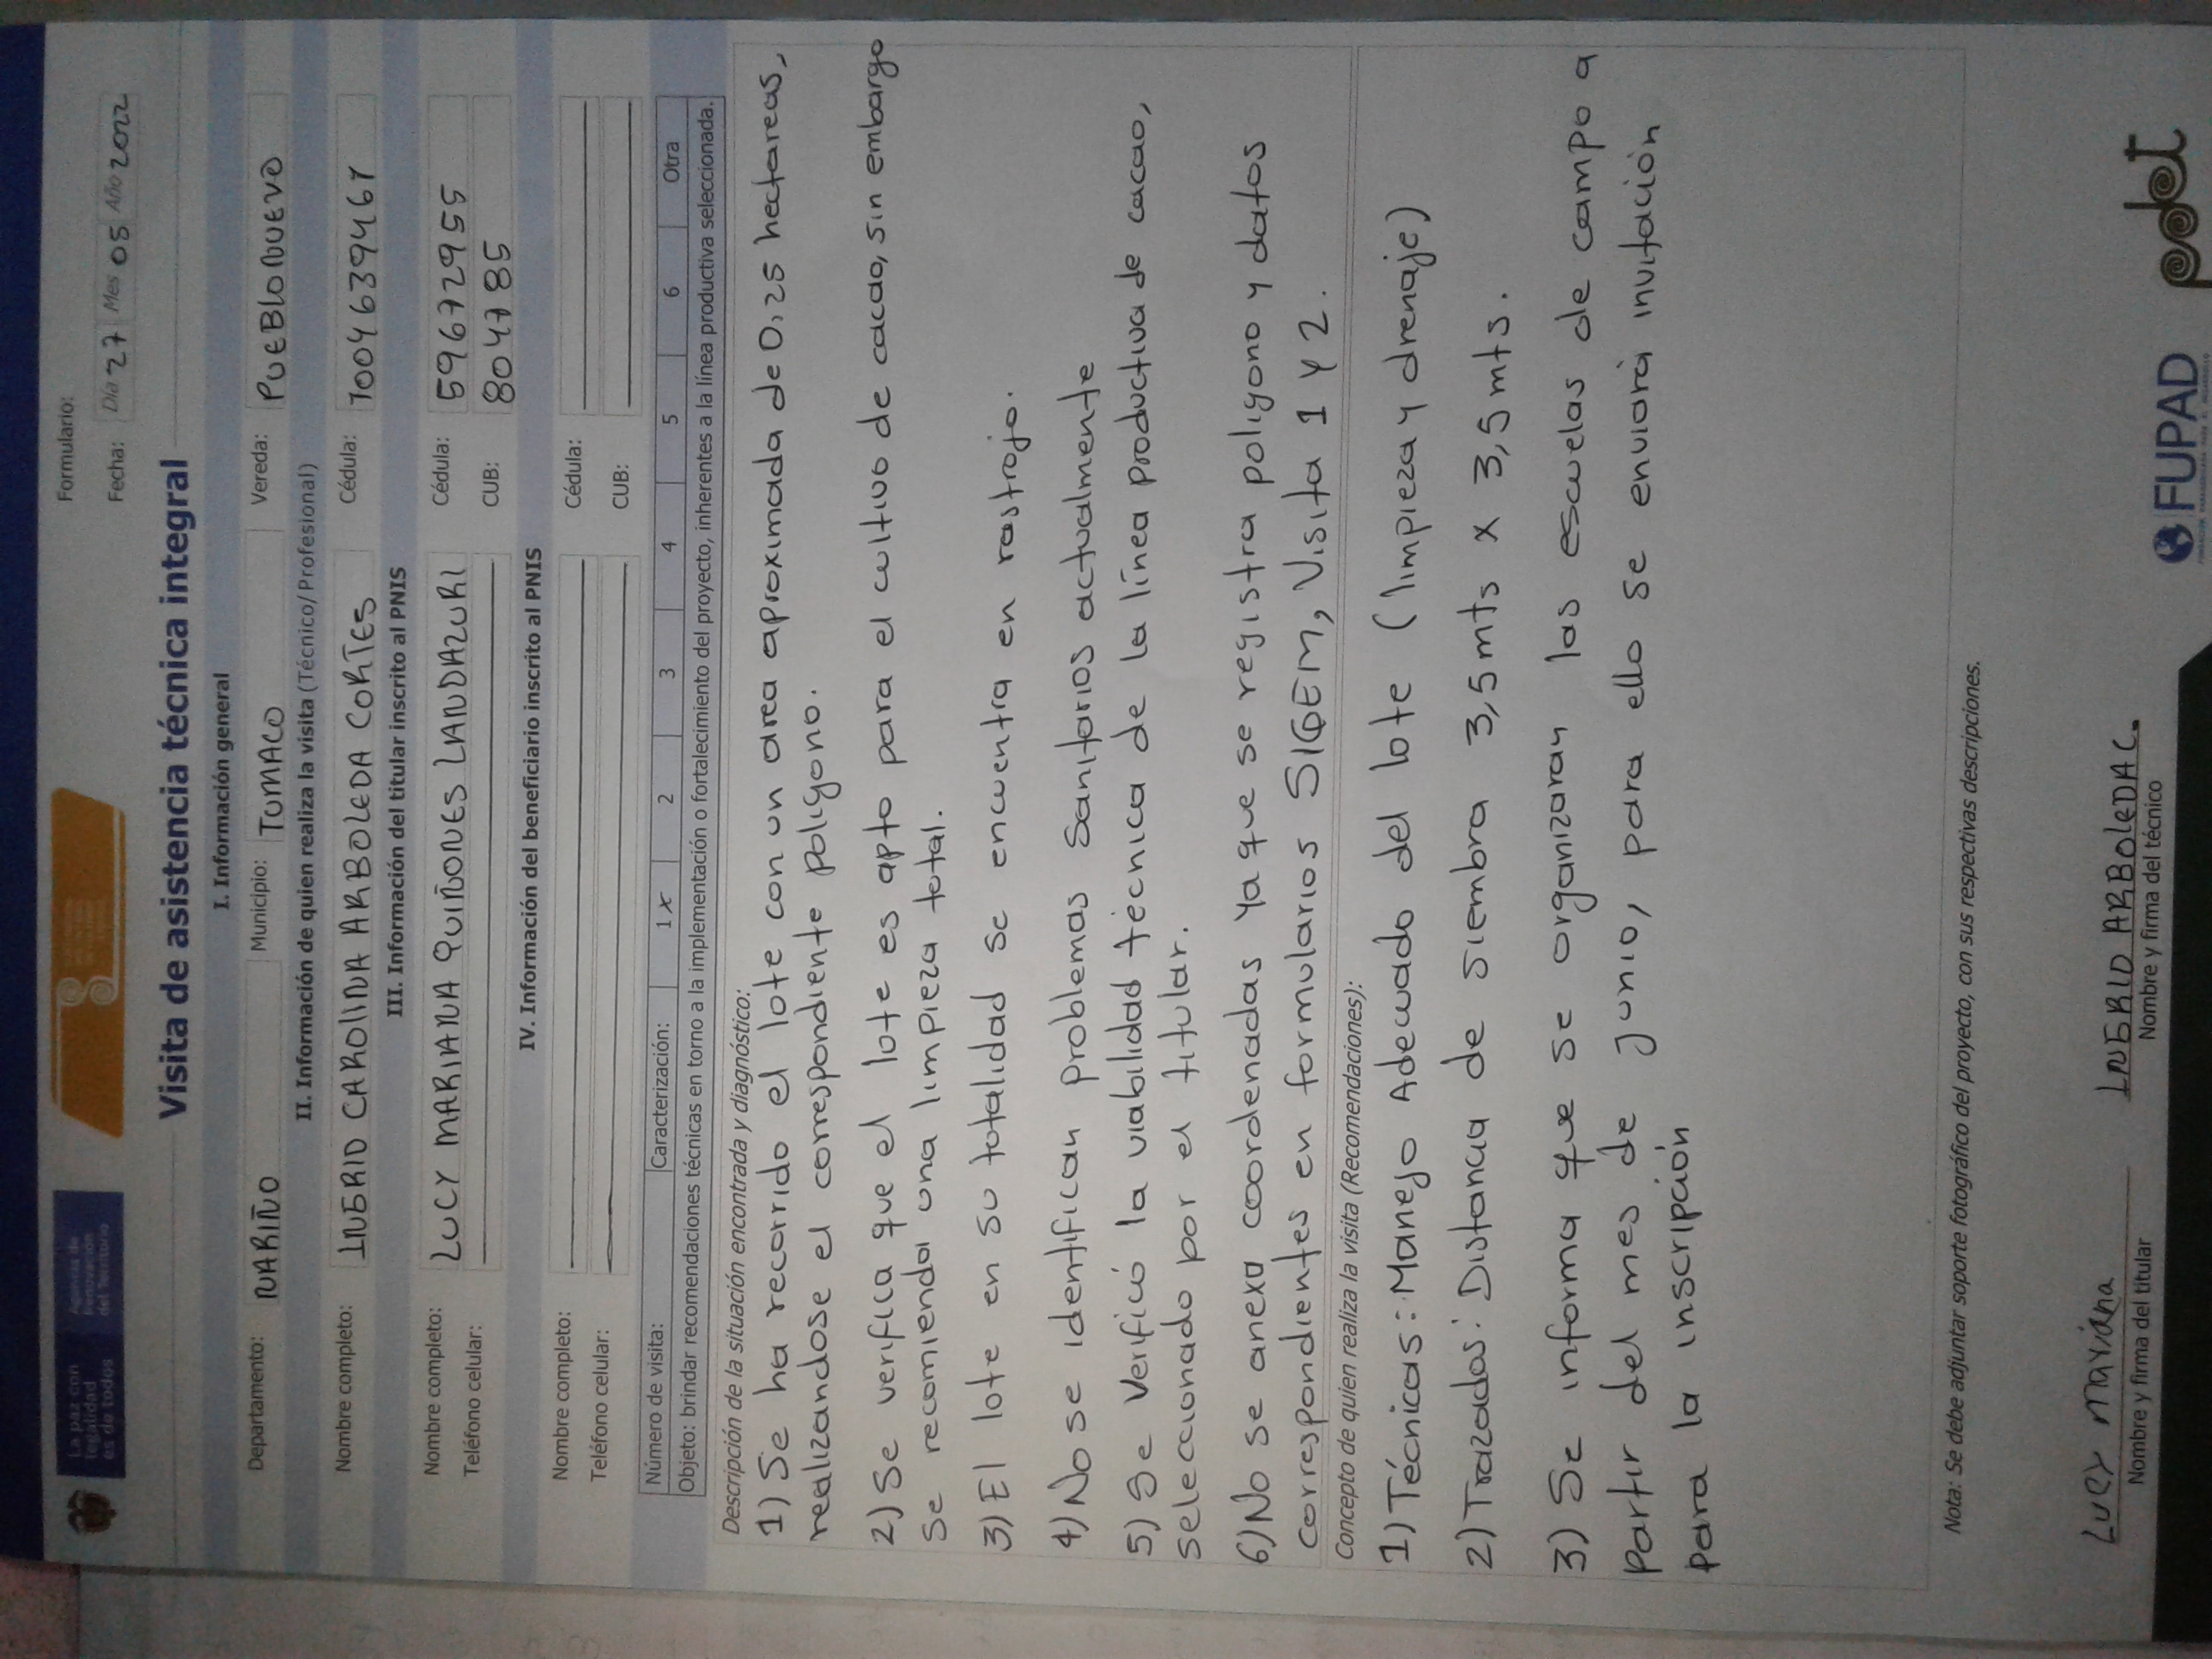 La paz con legalidad es de todos
Agencia de Renovación del Territorio
Formulario:
Fecha: Día 27 Mes 05 Año 2022
Visita de asistencia técnica integral
I. Información general
Departamento: NARIÑO Municipio: TUMACO Vereda: PUEBLONUEVO
II. Información de quien realiza la visita (Técnico/ Profesional)
Nombre completo: INGRID CAROLINA ARBOLEDA CORTES Cédula: 1004639467
III. Información del titular inscrito al PNIS
Nombre completo: LUCY MARIANA QUIÑONES LANDAZURI Cédula: 59672955
Teléfono celular: CUB: 804785
IV. Información del beneficiario inscrito al PNIS
Nombre completo: Cédula:
Teléfono celular: CUB:
Número de visita: Caracterización: 1 x 2 3 4 5 6 Otra
Objeto: brindar recomendaciones técnicas en torno a la implementación o fortalecimiento del proyecto, inherentes a la línea productiva seleccionada.
Descripción de la situación encontrada y diagnóstico:
1) Se ha recorrido el lote con un area aproximada de 0,25 hectareas,
realizandose el correspondiente poligono.
2) Se verifica que el lote es apto para el cultivo de cacao, sin embargo
se recomienda una limpieza total.
3) El lote en su totalidad se encuentra en rastrojo.
4) No se identifican problemas Sanitarios actualmente
5) Se verificó la viabilidad técnica de la línea productiva de cacao,
seleccionado por el titular.
6) No se anexa coordenadas ya que se registra poligono y datos
correspondientes en formularios SIGEM, Visita 1 y 2.
Concepto de quien realiza la visita (Recomendaciones):
1) Técnicas: Manejo Adecuado del lote (limpieza y drenaje)
2) Trazados: Distancia de siembra 3,5 mts x 3,5 mts.
3) Se informa que se organizaran las escuelas de campo a
partir del mes de junio, para ello se enviará invitación
para la inscripción
Nota: Se debe adjuntar soporte fotográfico del proyecto, con sus respectivas descripciones.
Lucy mariana INGRID ARBOLEDA C.
Nombre y firma del titular Nombre y firma del técnico
FUPAD
pdet